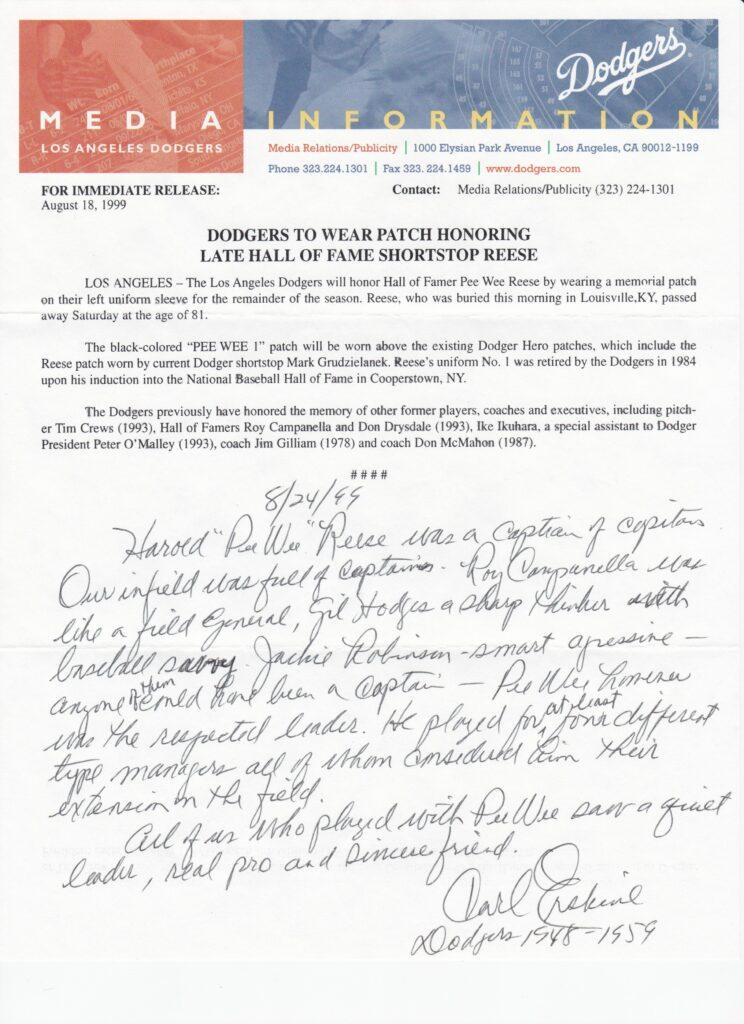 Dodgers
MEDIA INFORMATION
LOS ANGELES DODGERS
Media Relations/Publicity | 1000 Elysian Park Avenue | Los Angeles, CA 90012-1199
Phone 323.224.1301 | Fax 323. 224.1459 | www.dodgers.com
FOR IMMEDIATE RELEASE:
August 18, 1999
Contact: Media Relations/Publicity (323) 224-1301
DODGERS TO WEAR PATCH HONORING
LATE HALL OF FAME SHORTSTOP REESE
LOS ANGELES – The Los Angeles Dodgers will honor Hall of Famer Pee Wee Reese by wearing a memorial patch
on their left uniform sleeve for the remainder of the season. Reese, who was buried this morning in Louisville,KY, passed
away Saturday at the age of 81.
The black-colored “PEE WEE 1” patch will be worn above the existing Dodger Hero patches, which include the
Reese patch worn by current Dodger shortstop Mark Grudzielanek. Reese’s uniform No. 1 was retired by the Dodgers in 1984
upon his induction into the National Baseball Hall of Fame in Cooperstown, NY.
The Dodgers previously have honored the memory of other former players, coaches and executives, including pitch-
er Tim Crews (1993), Hall of Famers Roy Campanella and Don Drysdale (1993), Ike Ikuhara, a special assistant to Dodger
President Peter O’Malley (1993), coach Jim Gilliam (1978) and coach Don McMahon (1987).
####
8/24/99
Harold "Pee Wee" Reese was a Captian of capitans.
Our infield was full of captains. Roy Campanella was
like a field General, Gil Hodges a sharp thinker with
baseball savvy. Jackie Robinson - smart agressine —
anyone of them could have been a Captain — Pee Wee however
was the respected leader. He played for at least four different
type managers all of whom considered him their
extension on the field.
All of us who played with Pee Wee saw a quiet
leader, real pro and sincere friend.
Carl Erskine
Dodgers 1948-1959